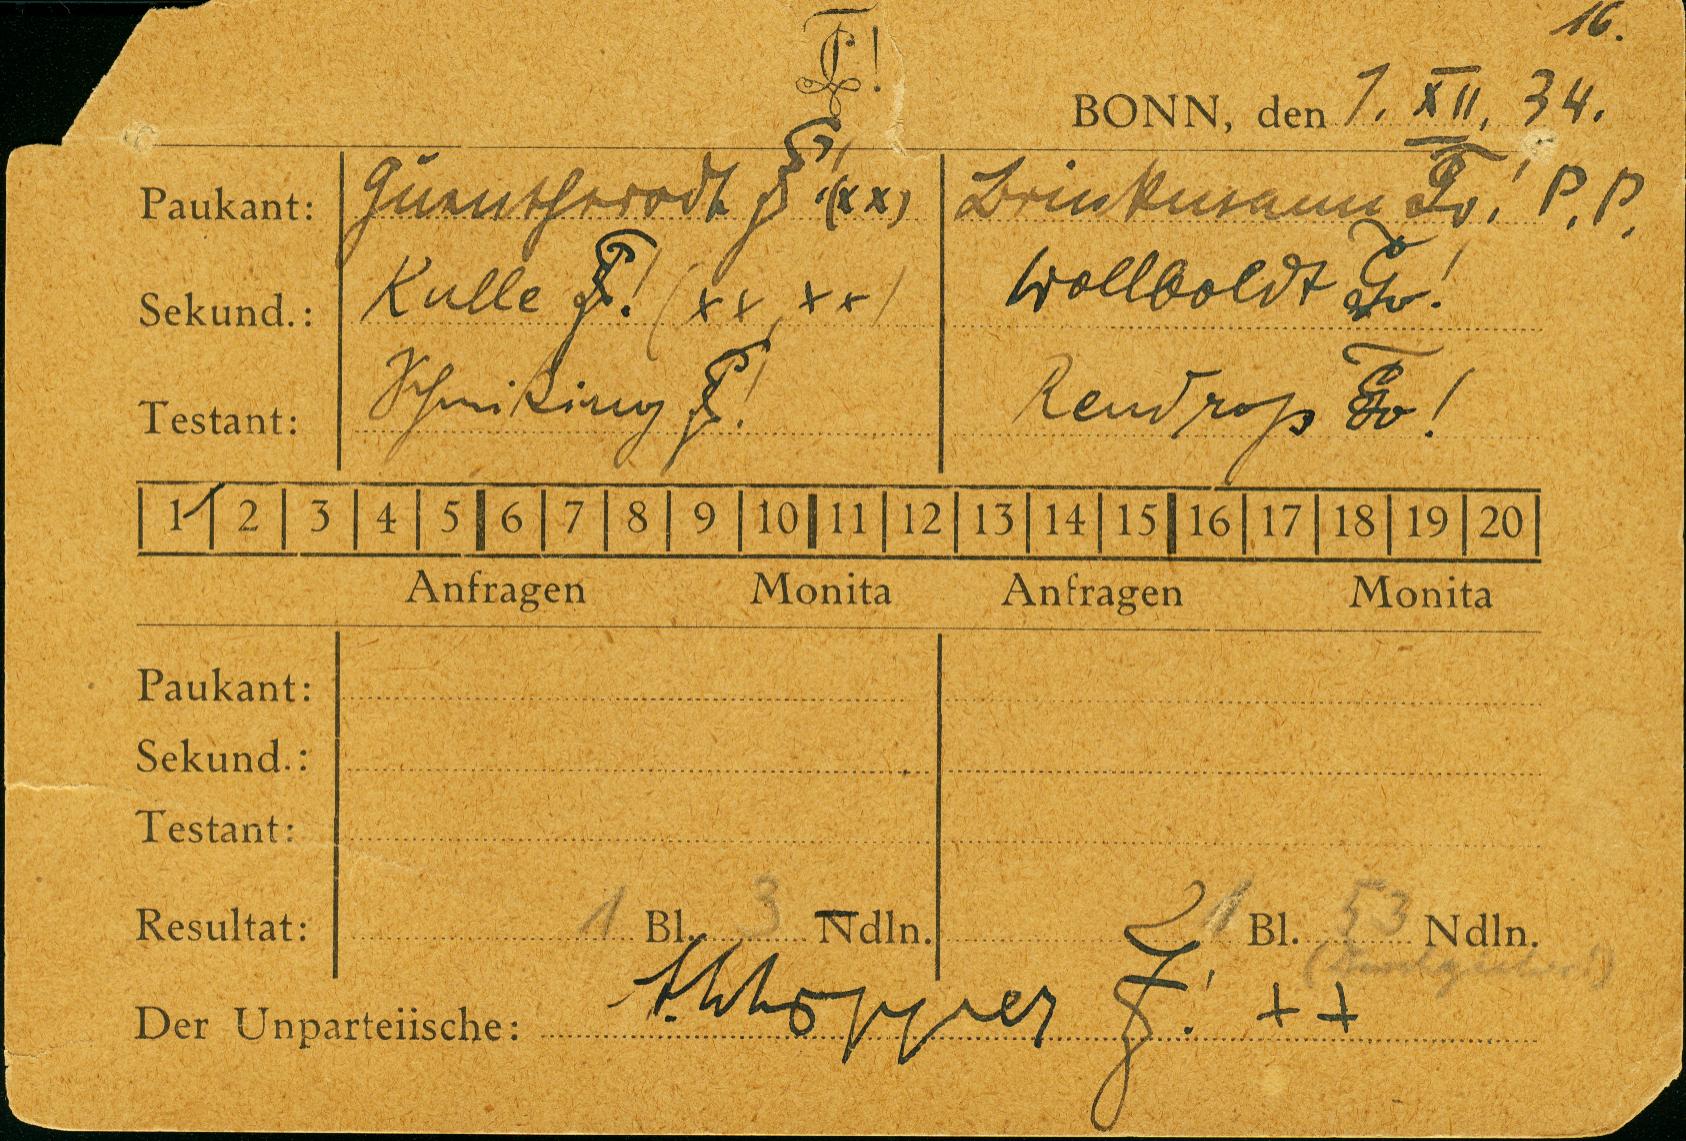 16.
BONN, den 1. XII. 34.
Paukant: (xx) Brinkmann P.P.
Sekund.: Kulle ! (xx, xx) Wollboldt !
Testant: ! Rendrop !
1 2 3 4 5 6 7 8 9 10 11 12 13 14 15 16 17 18 19 20
Anfragen Monita Anfragen Monita
Paukant:
Sekund.:
Testant:
Resultat: 1 Bl. 3 Ndln. Bl. 53 Ndln.
Der Unparteiische: ! ++